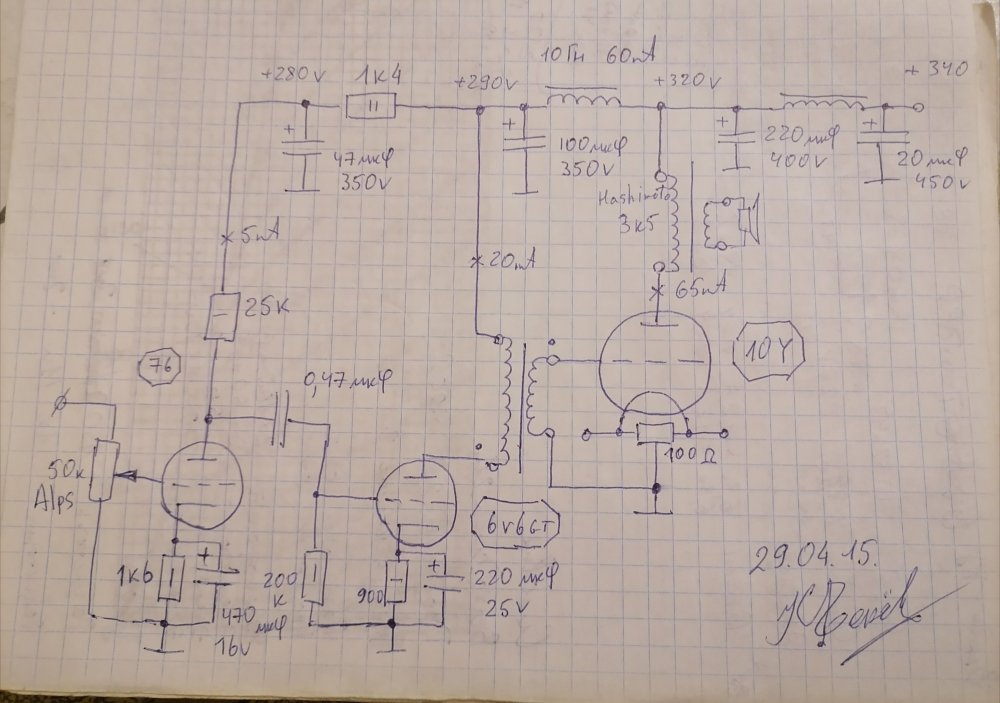 10Гн 60mA
+280v
1к4
+290v
+320v
+340
47мкф
350v
100мкф
350v
220мкф
400v
20мкф
450v
Hashimoto
3к5
5mA
20mA
65mA
25к
76
10Y
0,47мкф
50к
Alps
100Ω
6v6GT
1к6
470
мкф
16v
200
к
900
220 мкф
25v
29.04.15.